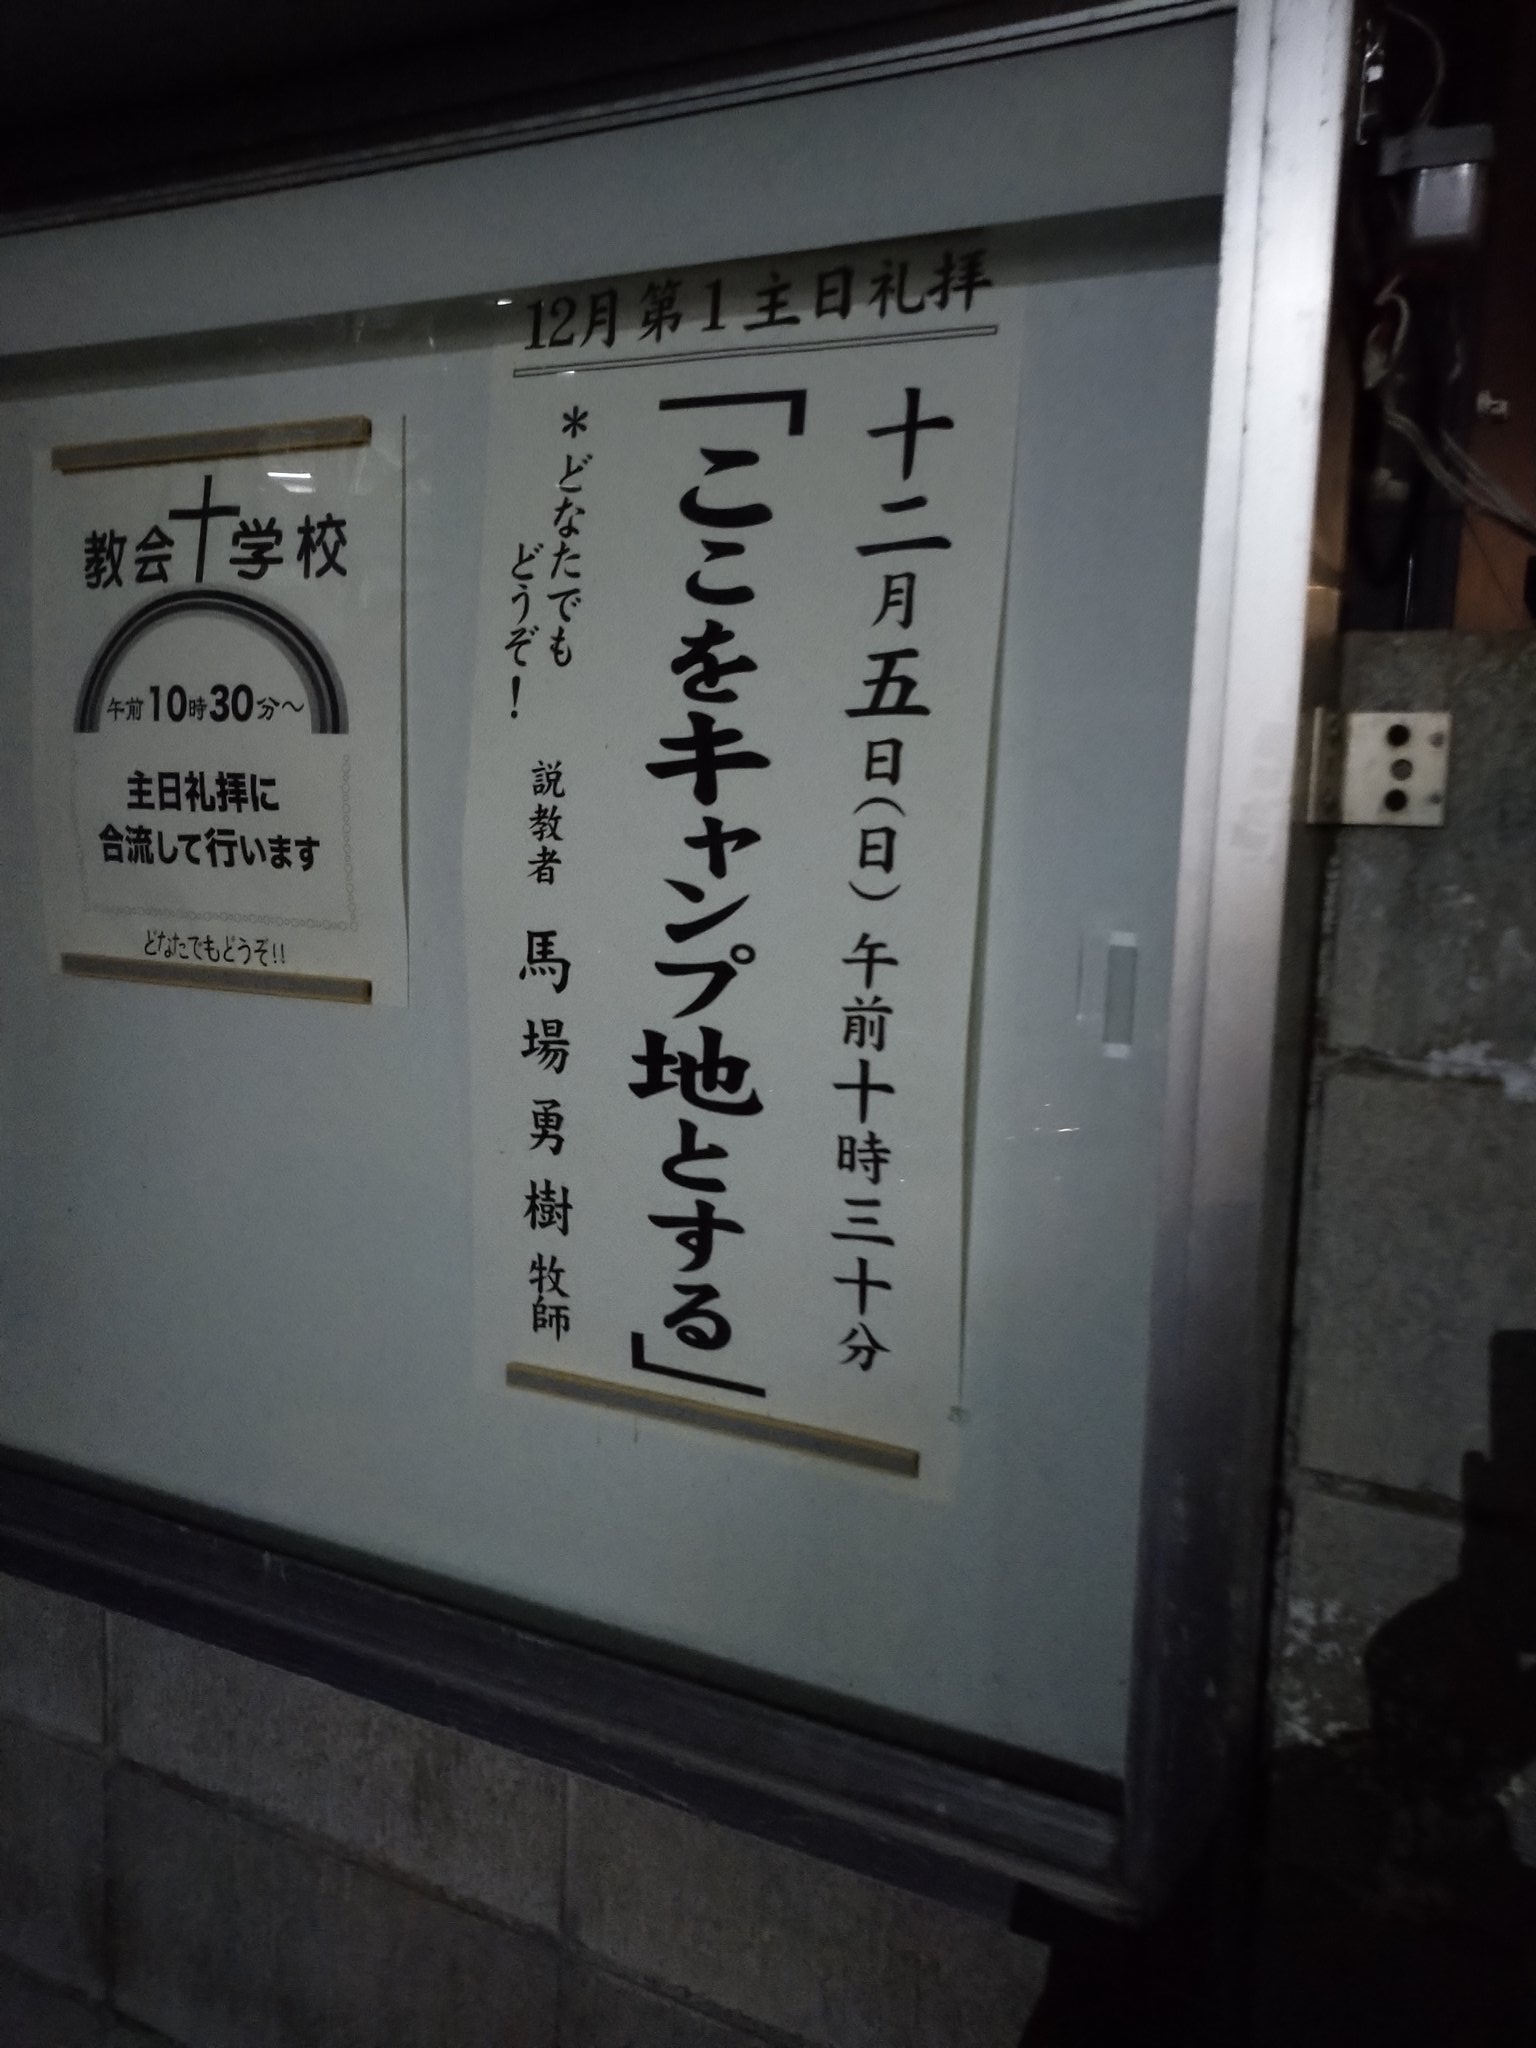 12月第1主日礼拝
十二月五日(日)午前十時三十分
「ここをキャンプ地とする」
*どなたでも
どうぞ!
説教者 馬場勇樹牧師
教会学校
午前10時30分～
主日礼拝に
合流して行います
どなたでもどうぞ!!